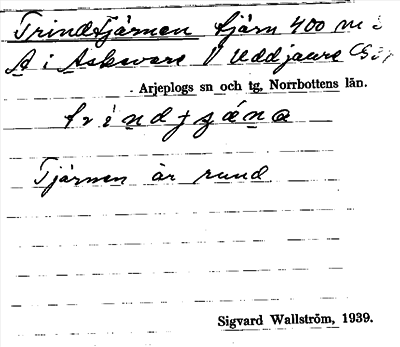 Trindtjärnen tjärn 400 m
A i Askvare V Uddjaure
Arjeplogs sn och tg, Norrbottens län.
Tjärnen är rund
Sigvard Wallström, 1939.